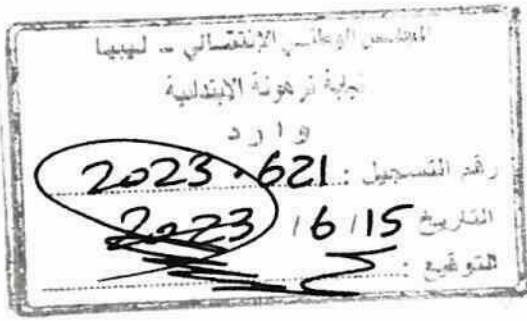 المجلس الوطني الإنتقالي - ليبيا
نيابة ترهونة الابتدائية
وارد
رقم التسجيل : 621 . 2023
التاريخ 15 / 6 / 2023
التوقيع :